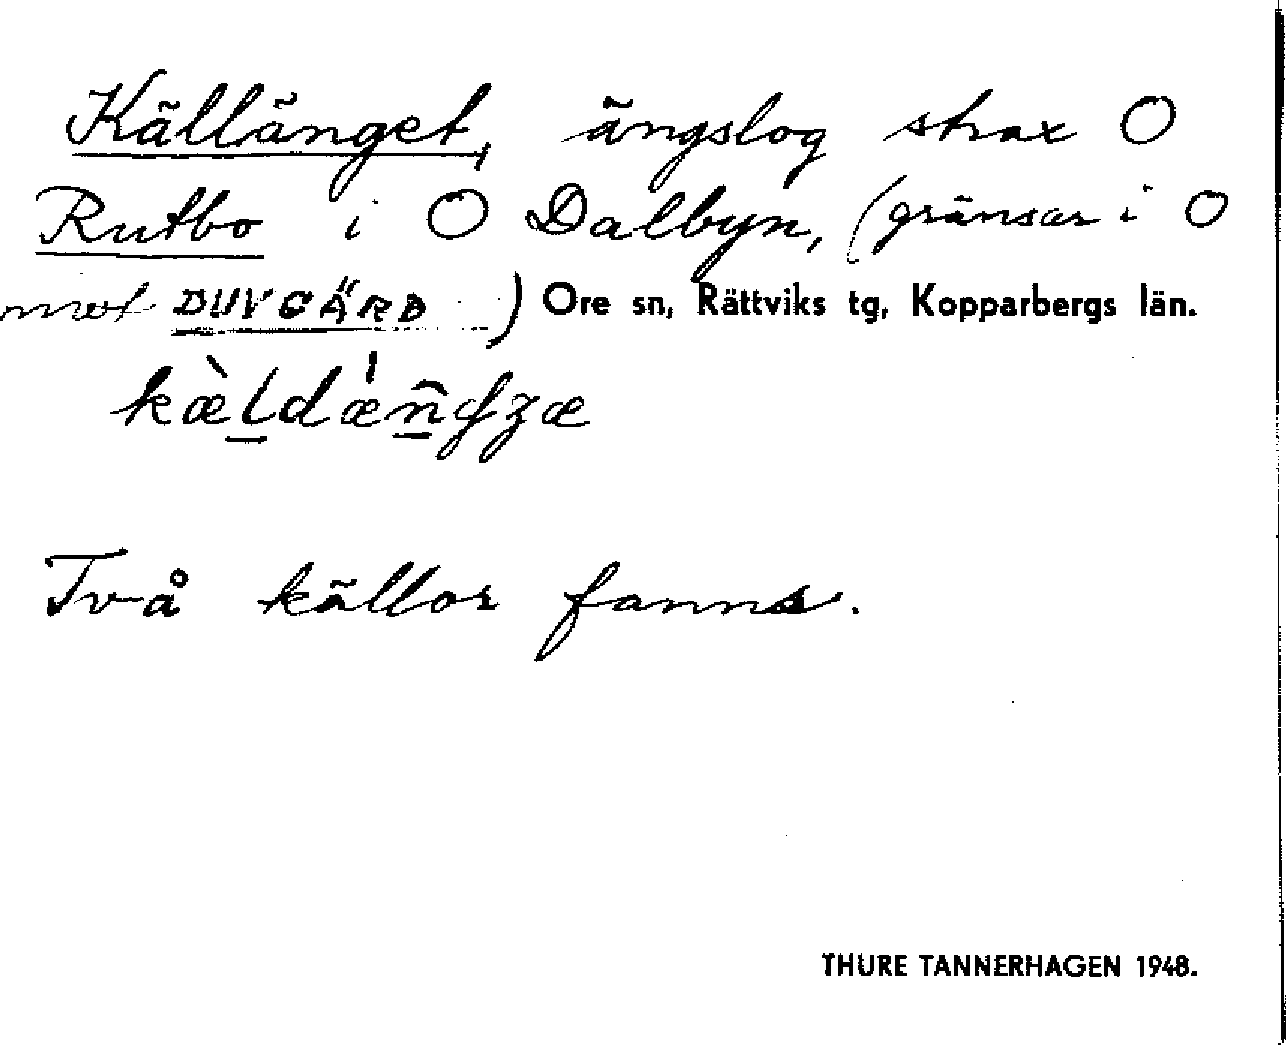 Källänget, ängslog strax O
Rutbo i O Dalbyn, (gränsar i O
mot DUVGÄRD ) Ore sn, Rättviks tg, Kopparbergs län.
Två källor fanns.
THURE TANNERHAGEN 1948.